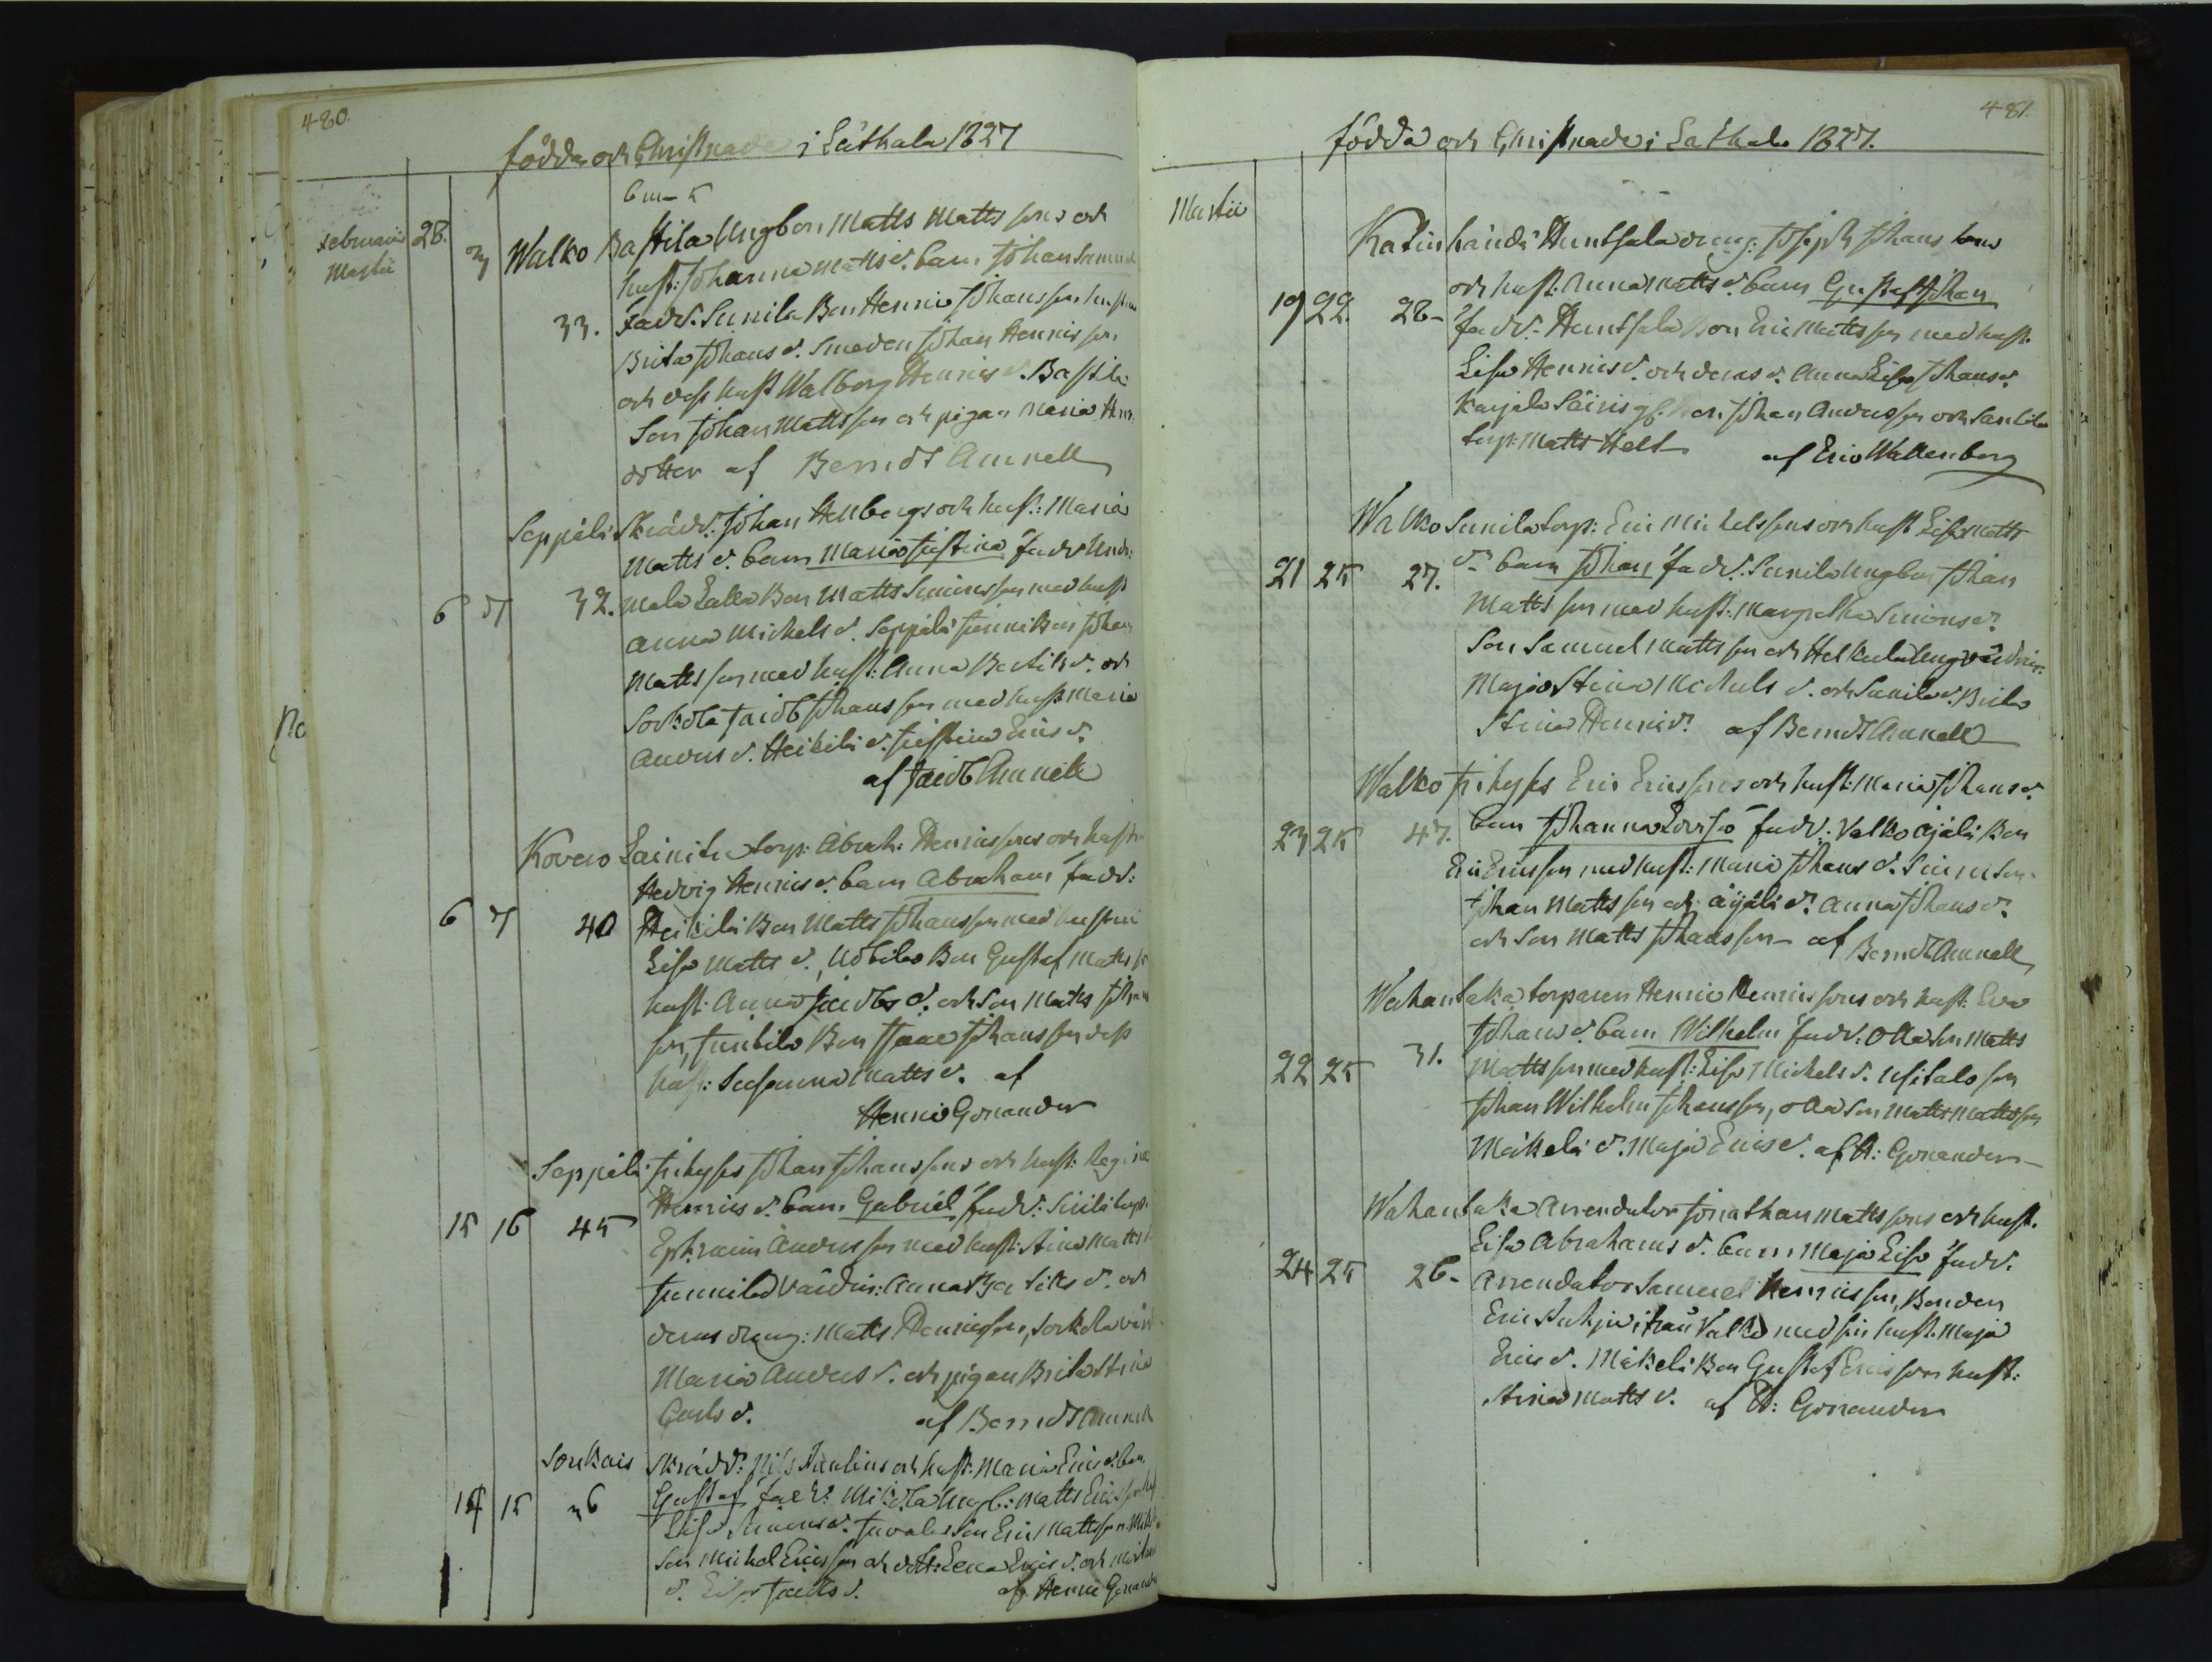 480.
födda och Christnade i Läthala 1827
Februarii 28. 3 Walko Bastila Ungbon Matts Mattssons och
Martii
hust: Johanna Matts d. barn Johan Samuel
33. Fadd. Sunila Bon Henric Johansson hustru
Brita Johans d. Smeden Johan Henricsson
och dess hust Walborg Henrics d. Bastila
Son Johan Mattsson och pigan Maria Hen
dotter af Berndt Amnell
Seppälä Skrädd: Johan Hellbergs och hust: Maria
Matts d. barn Maria Justina Fadd
6 7 32. Mala Lalla Bon Matts Simonsson med hust
Anna Michels d. Seppälä Bon Johan
Mattsson med hust: Anna Bertils d. och
Sorkola Jacob Johansson med hust Maria
Anders d. Heikilä d. Justina Erics d.
af Jacob Amnell
Kovero Lainila torp: Abrah: Henricssons och hustr
Hedvig Henrics d. barn Abraham Fadd:
6 7 40 Heikilä Bon Matts Johansson med hustru
Lisa Matts d., Bon Gustaf Matts
hust: Anna Jacobs d. och Son Matts Johan
son, Bon Isaac Johansson dess
hust: Susanna Matts d. af
Henric Gonander
Seppälä Inhyses Johan Johanssons och hust: Regina
Henrics d. barn Gabriel Fadd: torp.
15 16 45 Ephraim Andersson med hust: Stina Matts
Junnila Anna Bertils d. och
deras dreng: Matts Henricsson, Sorkola
Maria Anders d. och pigan Brita Stina
Carls d. af Berndt Amnell
Sorkais Skrädd: Nils och hust: Maria Erics d. barn
14 15 26 Gustaf Fadd: Ungb: Matts Ericsson
Lisa Simons d. Son Eric Mattsson
Son Michel Ericsson och dott: Lena Erics d. och
d. Lisa Jacobs d. af Henric Gonander
481.
födda och Christnade i Lathala 1827.
Martii
Katinhändä Huntsala dreng: Joseph Johanssons
och hust. Anna Matts d. barn Gustaf Johan
19 22. 28- Fadd. Huntsala Bon Eric Mattsson med hust.
Lisa Henrics d. och deras d. Anna Lisa Johans d.
Karjala Johan Andersson och
torp: Matts Helt af Eric Wallenberg
Walko Sunila torp: Eric Michelssons och hust Lisa Matts
21 25 27. d. barn Johan Fadd. Sunila Ungbon Johan
Mattsson med hust: Margetha Simons d.
Son Samuel Mattsson och
Maja Stina Michels d. och Sunila d. Brita
Stina Henrics d. af Berndt Amnell
Walko Inhyses Eric Ericssons och hust: Maria Johans d.
23 25 47. barn Johanna Lovisa Fadd: Valko Äjälä Bon
Eric Ericsson med hust: Maria Johans d. Son
Johan Mattsson och Äjälä d. Anna Johans d.
och Son Matts Johansson af Berndt Amnell
Wahantaka torparen Henric Henricssons och hust. Eva
Johans d. barn Wilhelm Fadd: Olla Son Matts
22 25 31. Mattsson med hust: Lisa Michels d. Usitalo Son
Johan Wilhelm Johansson, Olla Son Matts Mattsson
Mäkelä d. Maja Erics d. af H: Gonander
Wahantaka Arrendator Jonathan Mattssons och hust.
Lisa Abrahams d. barn Maja Lisa Fadd.
24 25 26- Arrendator Samuel Henricsson, Bonden
Eric ifrån Valko med sin hust. Maja
Erics d. Mäkelä Bon Gustaf Ericsson hust:
Stina Matts d. af H: Gonander